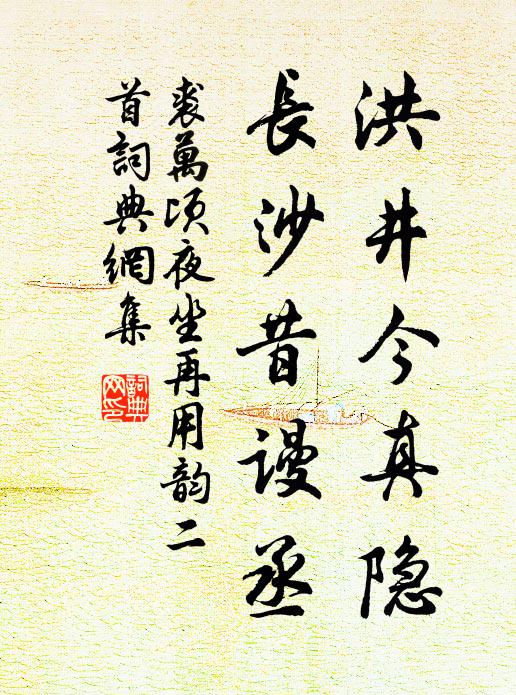 洪井今真隐
長沙昔谩丞
裘萬頃夜坐再用韵二
首詞典網集
詞典
网印